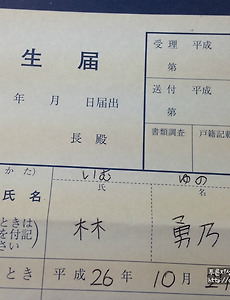 生届
受理 平成
第
送付 平成
第
年 月 日届出
長 殿
書類調査 戸籍記
かた） いむ ゆの
氏 名 氏 名
ときは
を付記
さい） 林 勇乃
とき 平成26年10月